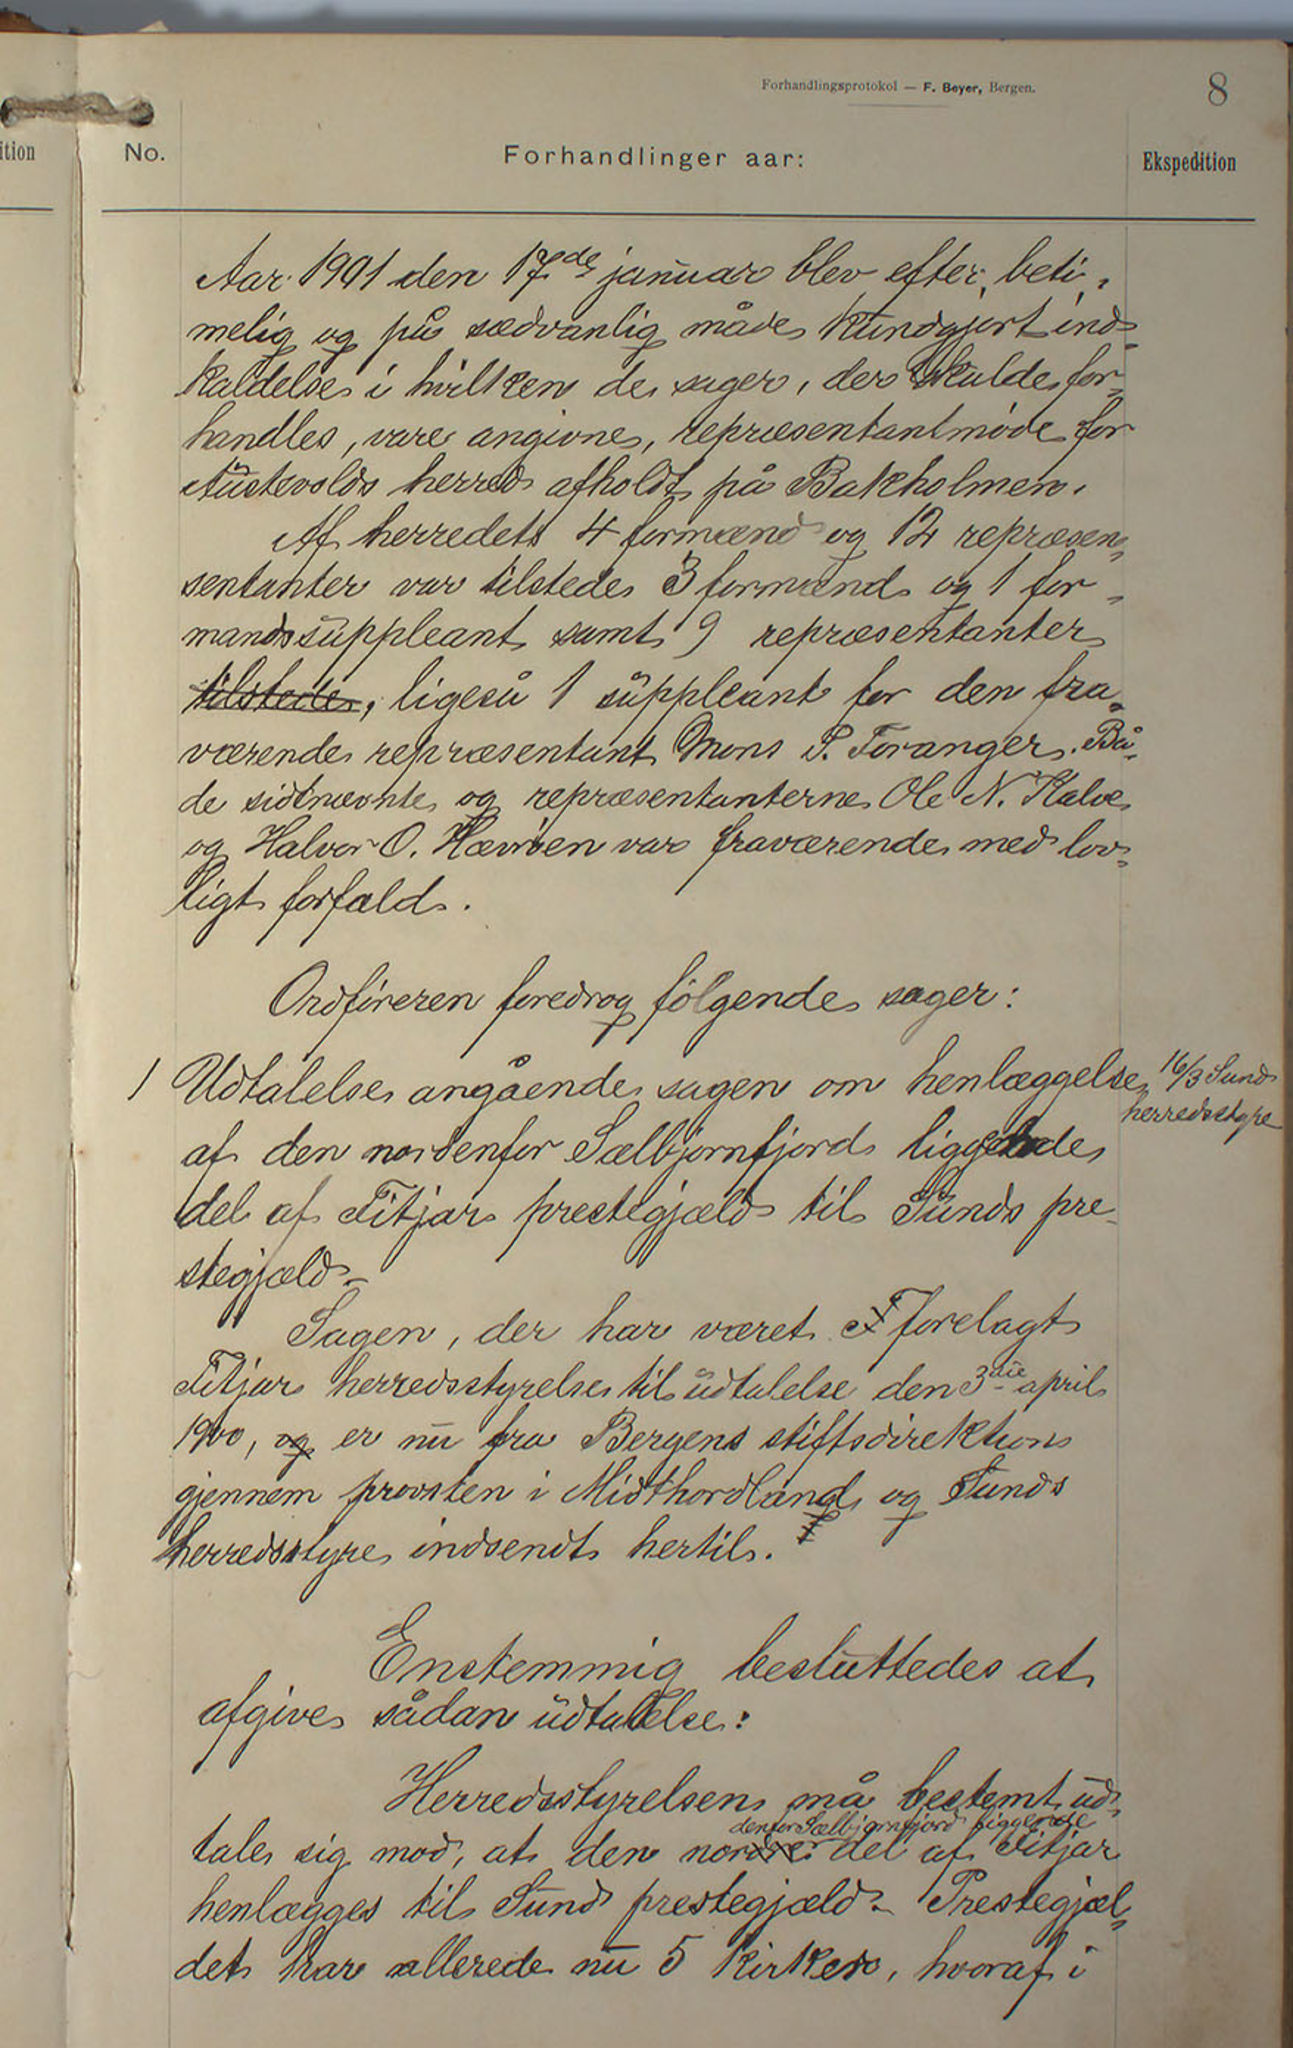 Forhandlingsprotokol — F. Beyer, Bergen.
8
ition
No.
Forhandlinger aar:
Ekspedition
Aar 1901 den 17de januar blev efter, beti-
melig og på sædvanlig måde kundgjort ind-
kaldelse i hvilken de sager, der skulde for-
handles, vare angivne, repræsentantmøde for
Austevolds herred afholdt på Bakholmen.
Af herredets 4 formænd og 12 repræsen-
sentanter var tilstede 3 formænd og 1 for-
mandssuppleant samt 9 repræsentanter
tilstede, ligeså 1 suppleant for den fra-
værende repræsentant Mons P. Toranger. Bå-
de sidtnævnte og repræsentanterne Ole N. Kalve
og Halvor O. Hævrøen var fraværende med lov-
ligt forfald.
Ordføreren foredrog følgende sager:
1 Udtalelse angående sagen om henlæggelse
16/3 Sund
herredsstyre
af den nordenfor Sælbjørnfjord liggende
del af Fitjar prestegjæld til Sunds pre-
stegjæld-
Sagen, der har været F forelagt
Fitjar herredsstyrelse til udtalelse den 3die april
1900, og er nu fra Bergens stiftsdirektion
gjennem provsten i Midthordland og Sunds
herredsstyre indsendt hertil. F
Enstemmig besluttedes at
afgive sådan udtalelse:
Herredsstyrelsen må bestemt ud-
denfor Sælbjørnfjord liggende
tale sig mod, at den nordre del af Fitjar
henlægges til Sund prestegjæld- Prestegjæl-
det har allerede nu 5 kirker, hvoraf i